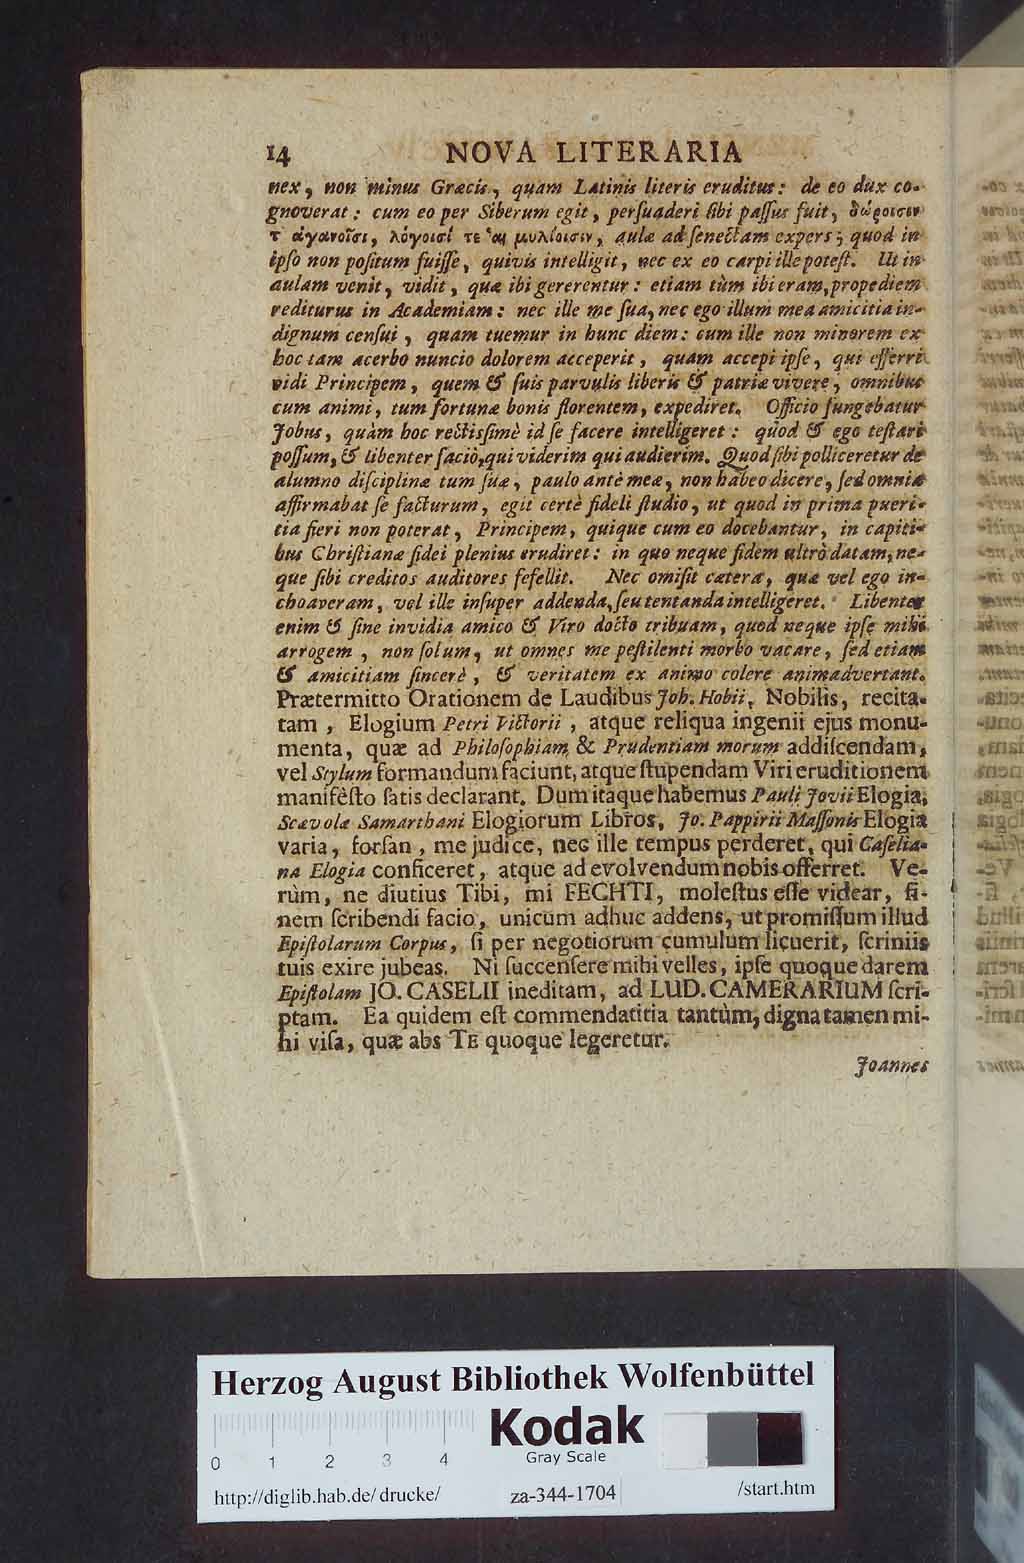 14 NOVA LITERARIA
nex, non minus Græcis, quam Latinis literis eruditus: de eo dux co-
gnoverat: cum eo per Siberum egit, perſuaderi ſibi paſſus fuit, δώροισιν
τ᾽ ἀγανοῖσι, λόγοισί τε καὶ μυλίοισιν, aulæ ad ſenectam expers; quod in
ipſo non poſitum fuiſſe, quivis intelligit, nec ex eo carpi ille poteſt. Ut in
aulam venit, vidit, quæ ibi gererentur: etiam tùm ibi eram, propediem
rediturus in Academiam: nec ille me ſua, nec ego illum mea amicitia in-
dignum cenſui, quam tuemur in hunc diem: cum ille non minorem ex
hoc tam acerbo nuncio dolorem acceperit, quam accepi ipſe, qui efferri
vidi Principem, quem & ſuis parvulis liberis & patriæ vivere, omnibus
cum animi, tum fortunæ bonis florentem, expediret. Officio fungebatur
Jobus, quàm hoc rectisſimè id ſe facere intelligeret: quod & ego teſtari
poſſum, & libenter facio, qui viderim qui audierim. Quod ſibi polliceretur de
alumno diſciplinæ tum ſuæ, paulo antè meæ, non habeo dicere, ſed omnia
affirmabat ſe facturum, egit certè fideli ſtudio, ut quod in prima pueri-
tia fieri non poterat, Principem, quique cum eo docebantur, in capiti-
bus Chriſtianæ fidei plenius erudiret: in quo neque fidem ultrò datam, ne-
que ſibi creditos auditores fefellit. Nec omiſit cætera, quæ vel ego in-
choaveram, vel ille inſuper addenda, ſeu tentanda intelligeret. Libenter
enim & ſine invidia amico & Viro docto tribuam, quod neque ipſe mihi
arrogem, non ſolum, ut omnes me peſtilenti morbo vacare, ſed etiam
& amicitiam ſincerè, & veritatem ex animo colere animadvertant.
Prætermitto Orationem de Laudibus Joh. Hobii, Nobilis, recita-
tam, Elogium Petri Victorii, atque reliqua ingenii ejus monu-
menta, quæ ad Philoſophiam & Prudentiam morum addiſcendam,
vel Stylum formandum faciunt, atque ſtupendam Viri eruditionem
manifèſto ſatis declarant. Dum itaque habemus Pauli Jovii Elogia,
Scævolæ Samarthani Elogiorum Libros, Jo. Pappirii Maſſonis Elogia
varia, forſan, me judice, nec ille tempus perderet, qui Caſelia-
na Elogia conficeret, atque ad evolvendum nobis offerret. Ve-
rùm, ne diutius Tibi, mi FECHTI, moleſtus eſſe videar, fi-
nem ſcribendi facio, unicum adhuc addens, ut promiſſum illud
Epiſtolarum Corpus, ſi per negotiorum cumulum licuerit, ſcriniis
tuis exire jubeas. Ni ſuccenſere mihi velles, ipſe quoque darem
Epiſtolam JO. CASELII ineditam, ad LUD. CAMERARIUM ſcri-
ptam. Ea quidem eſt commendatitia tantùm, digna tamen mi-
hi viſa, quæ abs TE quoque legeretur.
Joannes
Herzog August Bibliothek Wolfenbüttel
Kodak
Gray Scale
0 1 2 3 4
http://diglib.hab.de/drucke/ za-344-1704 /start.htm